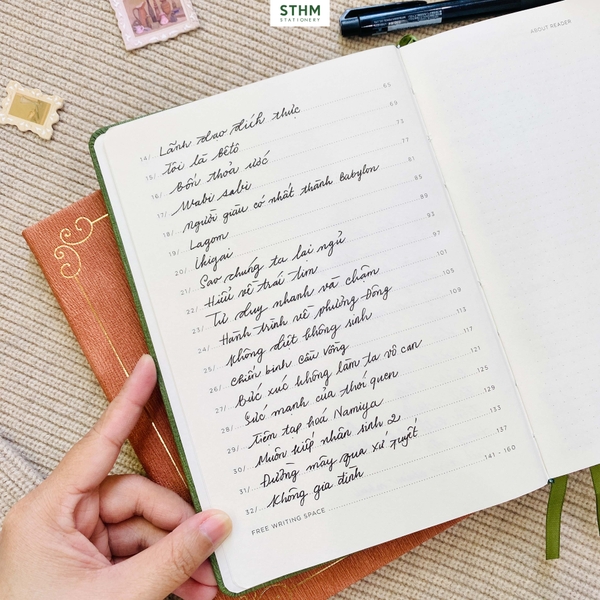 STHM
STATIONERY
ABOUT READER
14/ Lãnh đạo đích thực 65
15/ Tôi là Bêtô 69
16/ Bốn thỏa ước 73
17/ Wabi sabi 77
18/ Người giàu có nhất thành Babylon 81
19/ Lagom 85
20/ Ikigai 89
21/ Sao chúng ta lại ngủ 93
22/ Hiểu về trái tim 97
23/ Tư duy nhanh và chậm 101
24/ Hành trình về phương Đông 105
25/ Không diệt không sinh 109
26/ chiến binh cầu vồng 113
27/ Bức xúc không làm ta vô can 117
28/ Sức mạnh của thói quen 121
29/ Tiệm tạp hoá Namiya 125
30/ Muôn kiếp nhân sinh 2 129
31/ Đường mây qua xứ tuyết 133
32/ Không gia đình 137
FREE WRITING SPACE 141 - 160